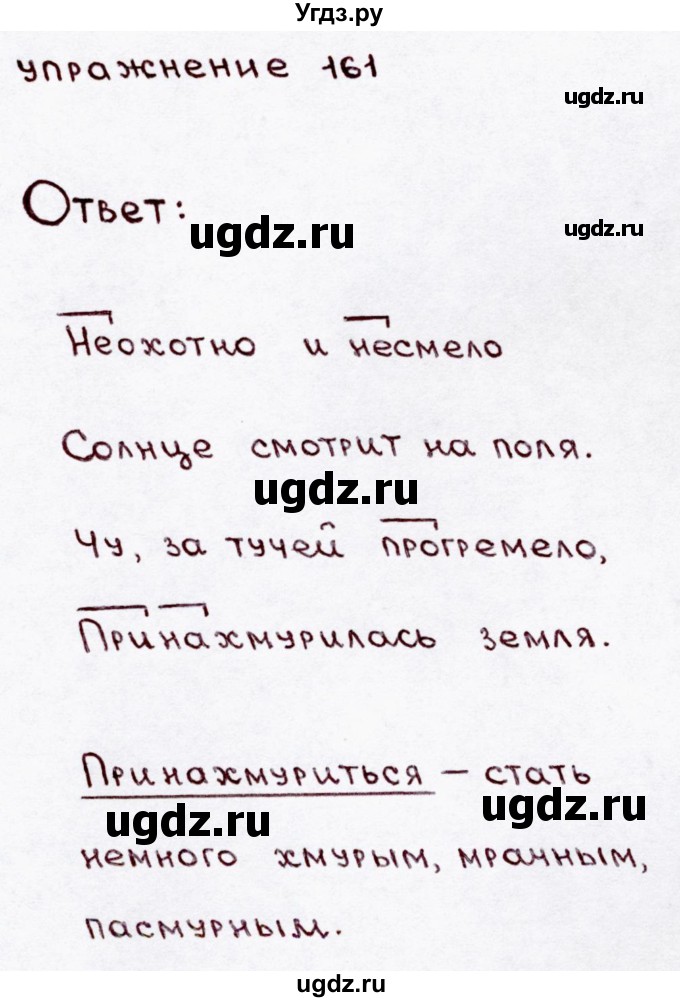 Угдз.ру
упражнение 161
ugdz.ru
Ответ:
ugdz.ru
ugdz.ru
Неохотно и несмело
Солнце смотрит на поля.
ugdz.ru
Чу, за тучей прогремело,
Принахмурилась земля.
Принахмуриться – стать
ugdz.ru
ugdz.ru
немного хмурым, мрачным,
пасмурным.
ugdz.ru